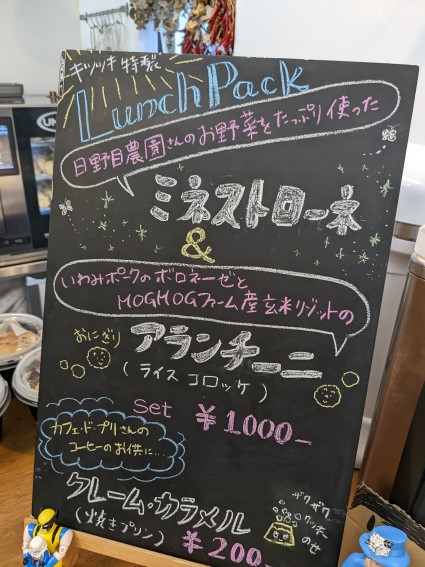 キツツキ特製
Lunch Pack
日野目農園さんのお野菜をたっぷり使った
ミネストローネ
&
いわみポークのボロネーゼと
MOGMOGファーム産玄米リゾットの
おにぎり
アランチーニ
(ライスコロッケ)
set ¥1000-
カフェ・ド・プリさんの
コーヒーのお供に…
クレーム・カラメル
(焼きプリン)
¥200-
ザクザク
クッキー
のせ